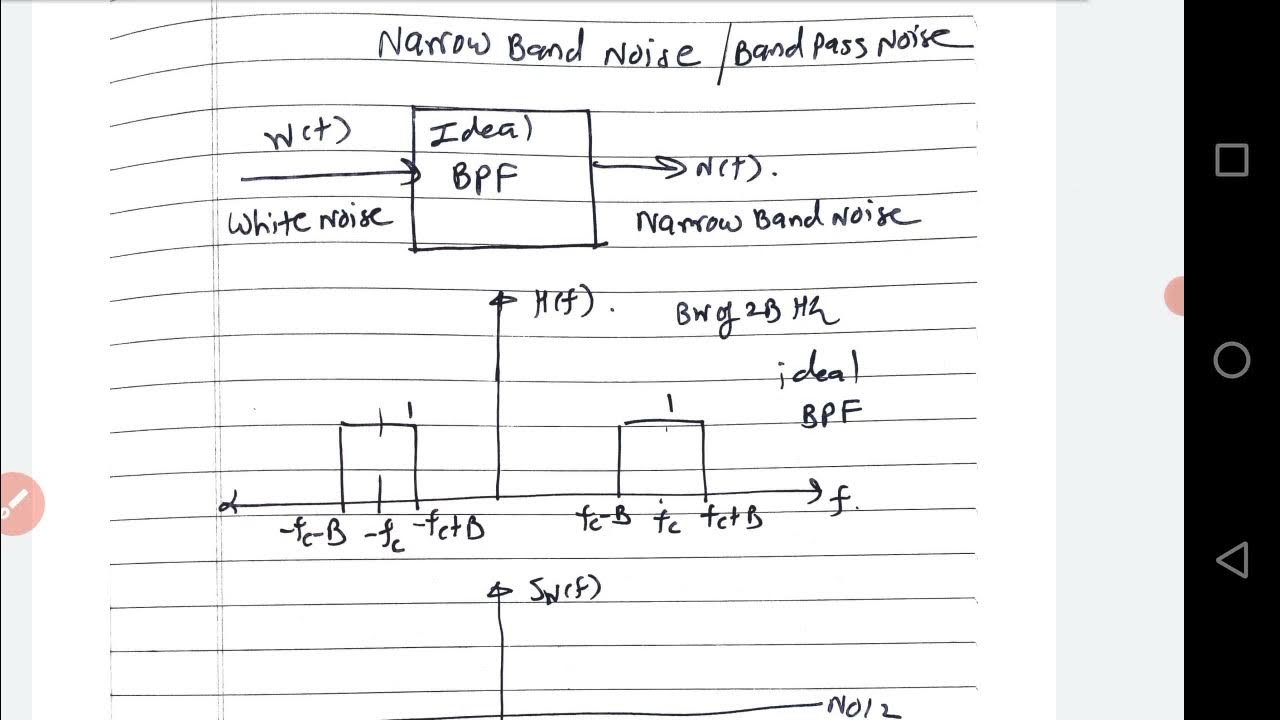 Narrow Band Noise / Band Pass Noise
W(t)
Ideal
BPF
N(t).
White Noise
Narrow Band Noise
H(f).
BW of 2B Hz
ideal
BPF
1
1
f.
-fc-B
-fc
-fc+B
fc-B
fc
fc+B
SW(f)
N0/2